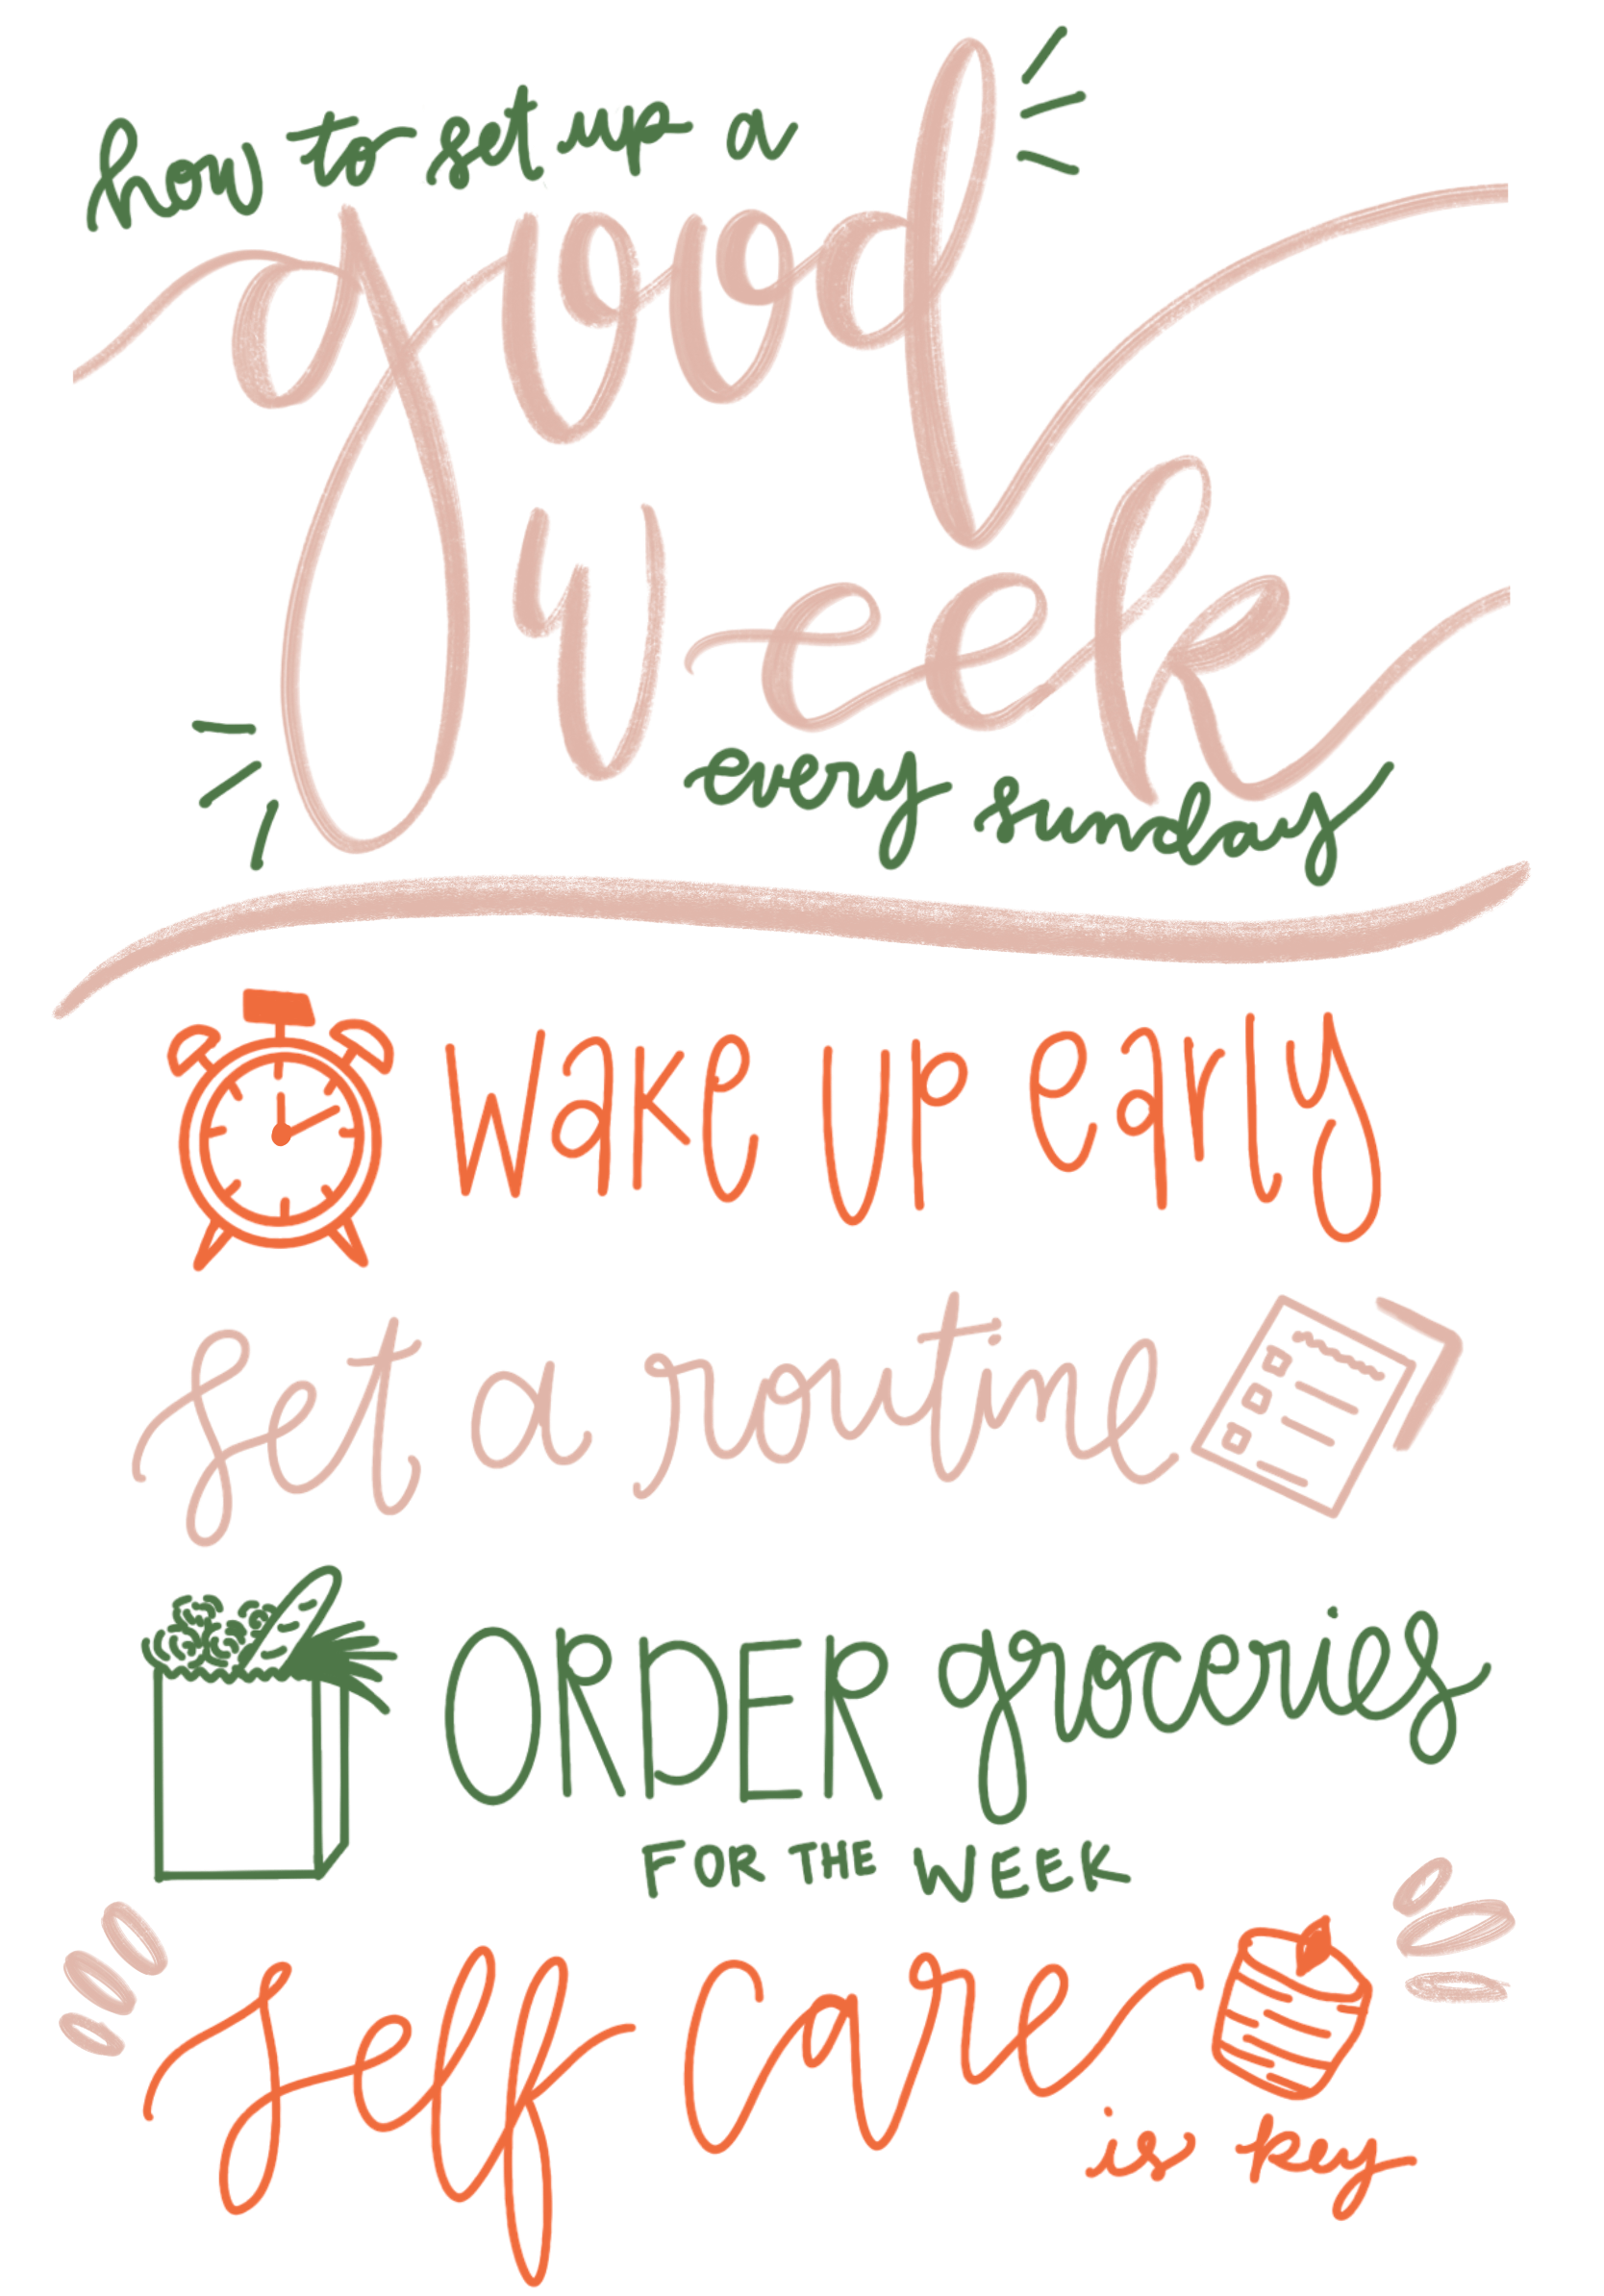 how to set up a
good
week
every sunday
wake up early
set a routine
ORDER groceries
FOR THE WEEK
self care
is key